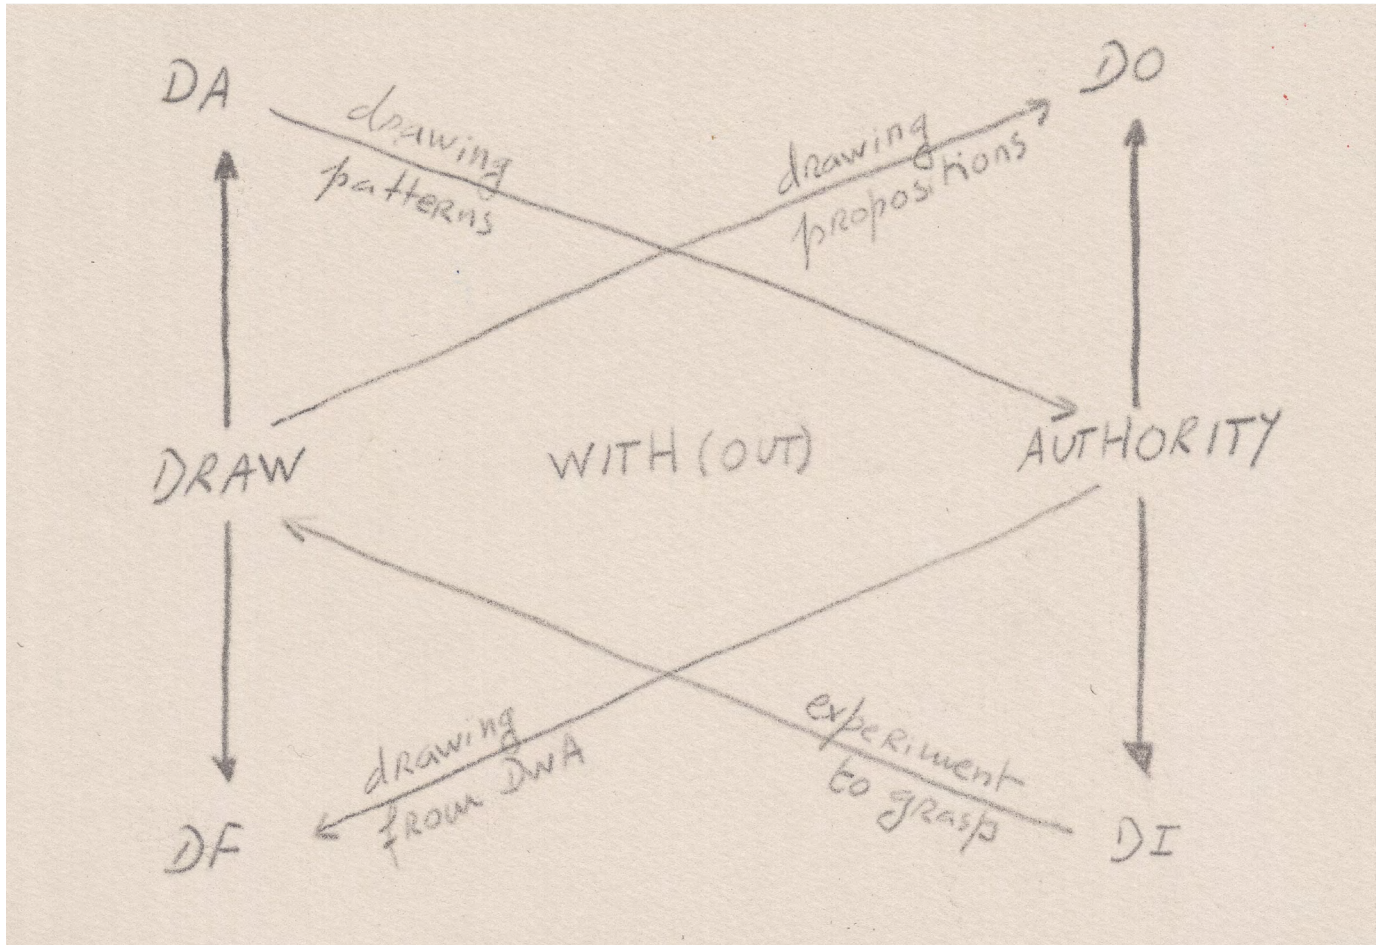 DA
DO
drawing
patterns
drawing
propositions
DRAW
WITH(OUT)
AUTHORITY
drawing
from DWA
experiment
to grasp
DF
DI